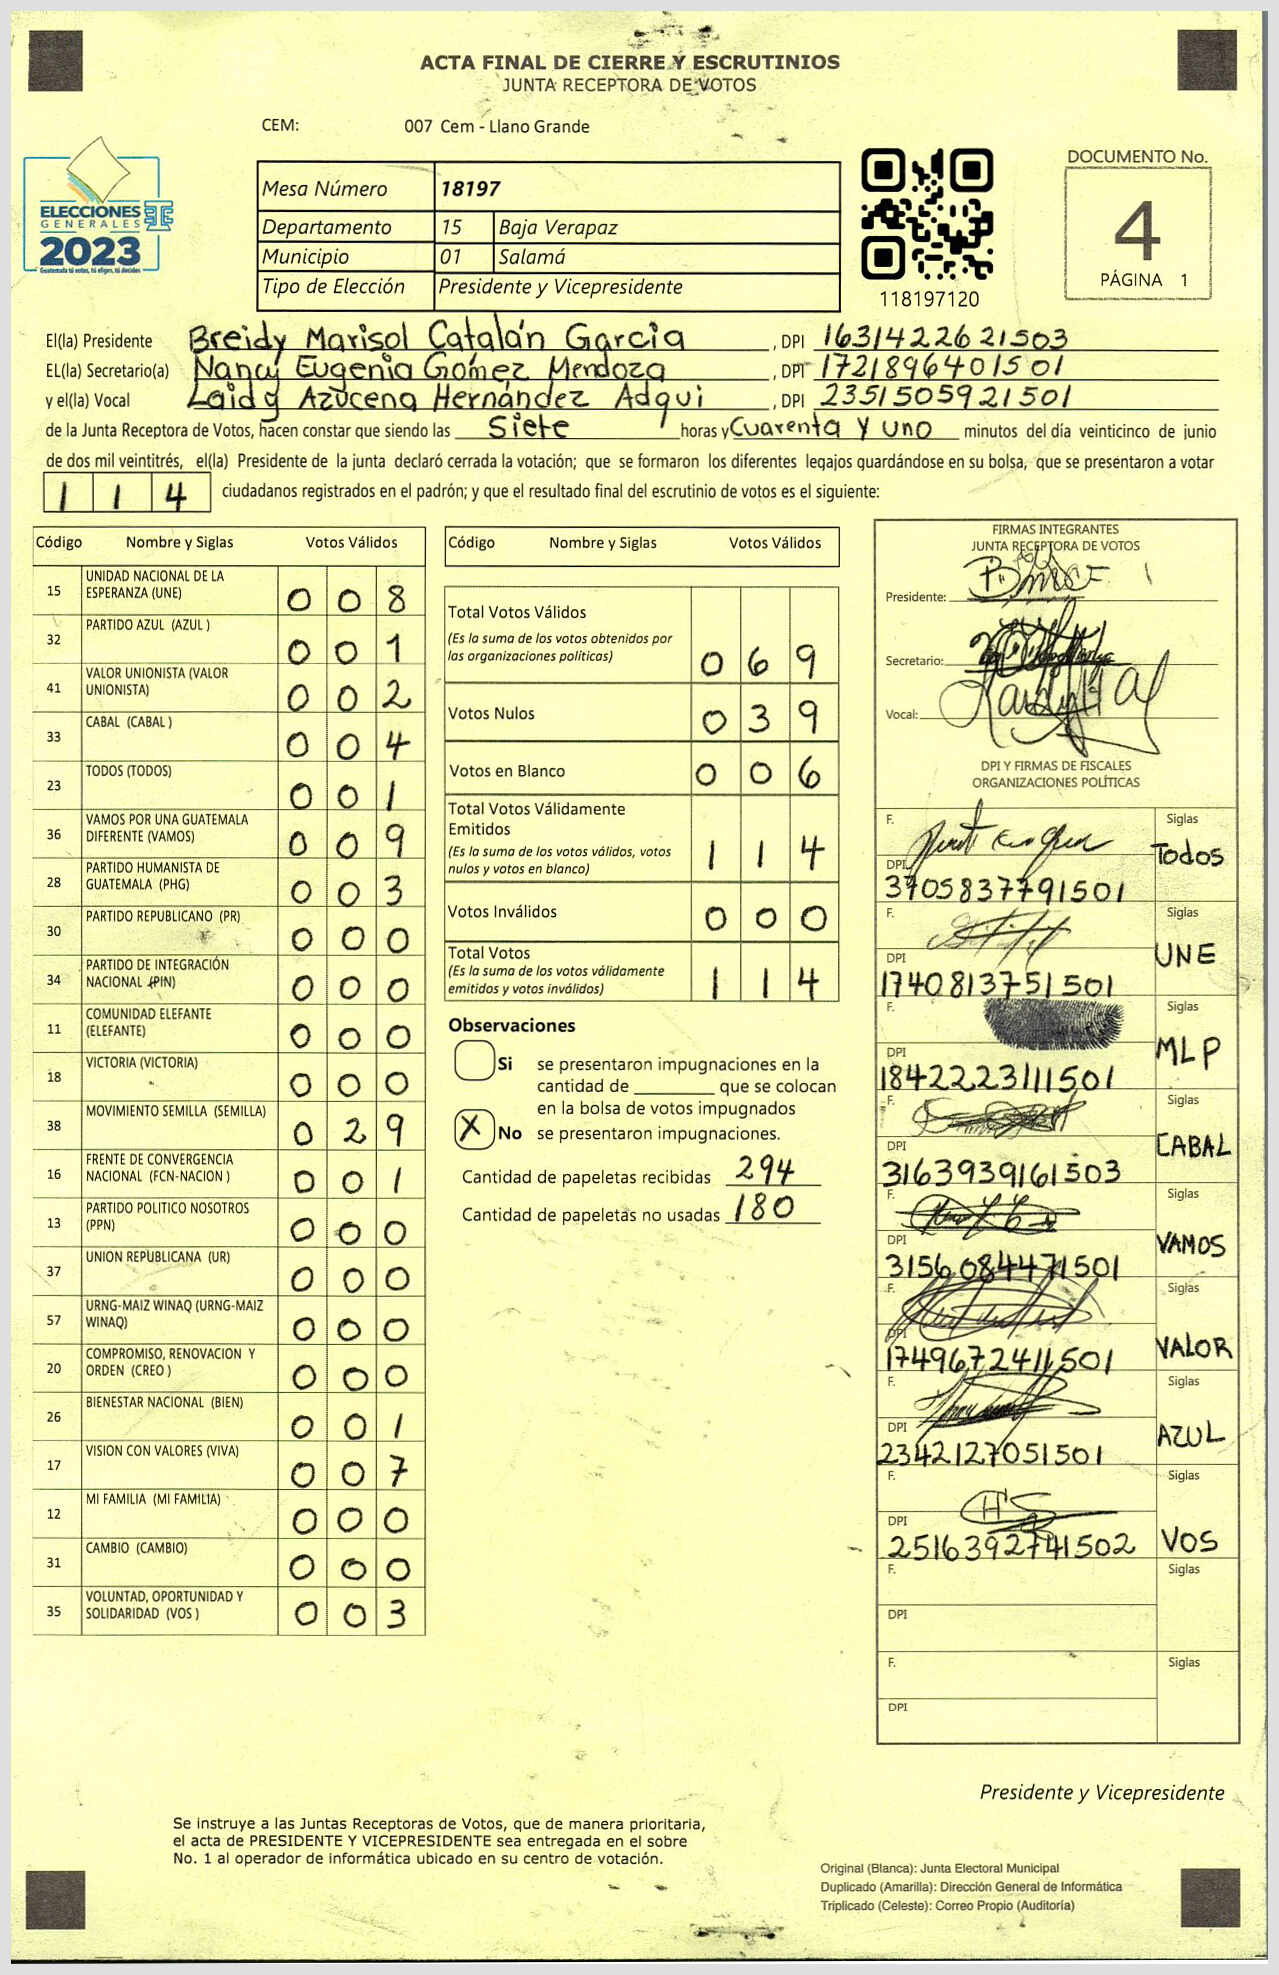 ACTA FINAL DE CIERRE Y ESCRUTINIOS
JUNTA RECEPTORA DE VOTOS
CEM: 007 Cem - Llano Grande
ELECCIONES
GENERALES
2023
Guatemala tú votas, tú eliges, tú decides
Mesa Número 18197
Departamento 15 Baja Verapaz
Municipio 01 Salamá
Tipo de Elección Presidente y Vicepresidente
118197120
DOCUMENTO No.
4
PÁGINA 1
El(la) Presidente Breidy Marisol Catalán Garcia, DPI 1631422621503
EL(la) Secretario(a) Nancy Eugenia Gómez Mendoza, DPI 1721896401501
y el(la) Vocal Laidy Azucena Hernández Adqui, DPI 2351505921501
de la Junta Receptora de Votos, hacen constar que siendo las Siete horas y Cuarenta y uno minutos del día veinticinco de junio
de dos mil veintitrés, el(la) Presidente de la junta declaró cerrada la votación; que se formaron los diferentes legajos guardándose en su bolsa, que se presentaron a votar
114 ciudadanos registrados en el padrón; y que el resultado final del escrutinio de votos es el siguiente:
Código Nombre y Siglas Votos Válidos
15 UNIDAD NACIONAL DE LA ESPERANZA (UNE) 0 0 8
32 PARTIDO AZUL (AZUL ) 0 0 1
41 VALOR UNIONISTA (VALOR UNIONISTA) 0 0 2
33 CABAL (CABAL ) 0 0 4
23 TODOS (TODOS) 0 0 1
36 VAMOS POR UNA GUATEMALA DIFERENTE (VAMOS) 0 0 9
28 PARTIDO HUMANISTA DE GUATEMALA (PHG) 0 0 3
30 PARTIDO REPUBLICANO (PR) 0 0 0
34 PARTIDO DE INTEGRACIÓN NACIONAL (PIN) 0 0 0
11 COMUNIDAD ELEFANTE (ELEFANTE) 0 0 0
18 VICTORIA (VICTORIA) 0 0 0
38 MOVIMIENTO SEMILLA (SEMILLA) 0 2 9
16 FRENTE DE CONVERGENCIA NACIONAL (FCN-NACION ) 0 0 1
13 PARTIDO POLITICO NOSOTROS (PPN) 0 0 0
37 UNION REPUBLICANA (UR) 0 0 0
57 URNG-MAIZ WINAQ (URNG-MAIZ WINAQ) 0 0 0
20 COMPROMISO, RENOVACION Y ORDEN (CREO ) 0 0 0
26 BIENESTAR NACIONAL (BIEN) 0 0 1
17 VISION CON VALORES (VIVA) 0 0 7
12 MI FAMILIA (MI FAMILIA) 0 0 0
31 CAMBIO (CAMBIO) 0 0 0
35 VOLUNTAD, OPORTUNIDAD Y SOLIDARIDAD (VOS ) 0 0 3
Código Nombre y Siglas Votos Válidos
Total Votos Válidos 0 6 9
(Es la suma de los votos obtenidos por
las organizaciones políticas)
Votos Nulos 0 3 9
Votos en Blanco 0 0 6
Total Votos Válidamente
Emitidos 1 1 4
(Es la suma de los votos válidos, votos
nulos y votos en blanco)
Votos Inválidos 0 0 0
Total Votos 1 1 4
(Es la suma de los votos válidamente
emitidos y votos inválidos)
Observaciones
Si se presentaron impugnaciones en la
cantidad de ________ que se colocan
en la bolsa de votos impugnados
X No se presentaron impugnaciones.
Cantidad de papeletas recibidas 294
Cantidad de papeletas no usadas 180
FIRMAS INTEGRANTES
JUNTA RECEPTORA DE VOTOS
Presidente:
Secretario:
Vocal:
DPI Y FIRMAS DE FISCALES
ORGANIZACIONES POLÍTICAS
F. Siglas
DPI 3705837791501 Todos
F. Siglas
DPI 1740813751501 UNE
F. Siglas
DPI 1842223111501 MLP
F. Siglas
DPI 3163939161503 CABAL
F. Siglas
DPI 3156084471501 VAMOS
F. Siglas
DPI 1749672411501 VALOR
F. Siglas
DPI 2342127051501 AZUL
F. Siglas
DPI 2516392741502 VOS
F. Siglas
DPI
F. Siglas
DPI
Presidente y Vicepresidente
Se instruye a las Juntas Receptoras de Votos, que de manera prioritaria,
el acta de PRESIDENTE Y VICEPRESIDENTE sea entregada en el sobre
No. 1 al operador de informática ubicado en su centro de votación.
Original (Blanca): Junta Electoral Municipal
Duplicado (Amarilla): Dirección General de Informática
Triplicado (Celeste): Correo Propio (Auditoría)